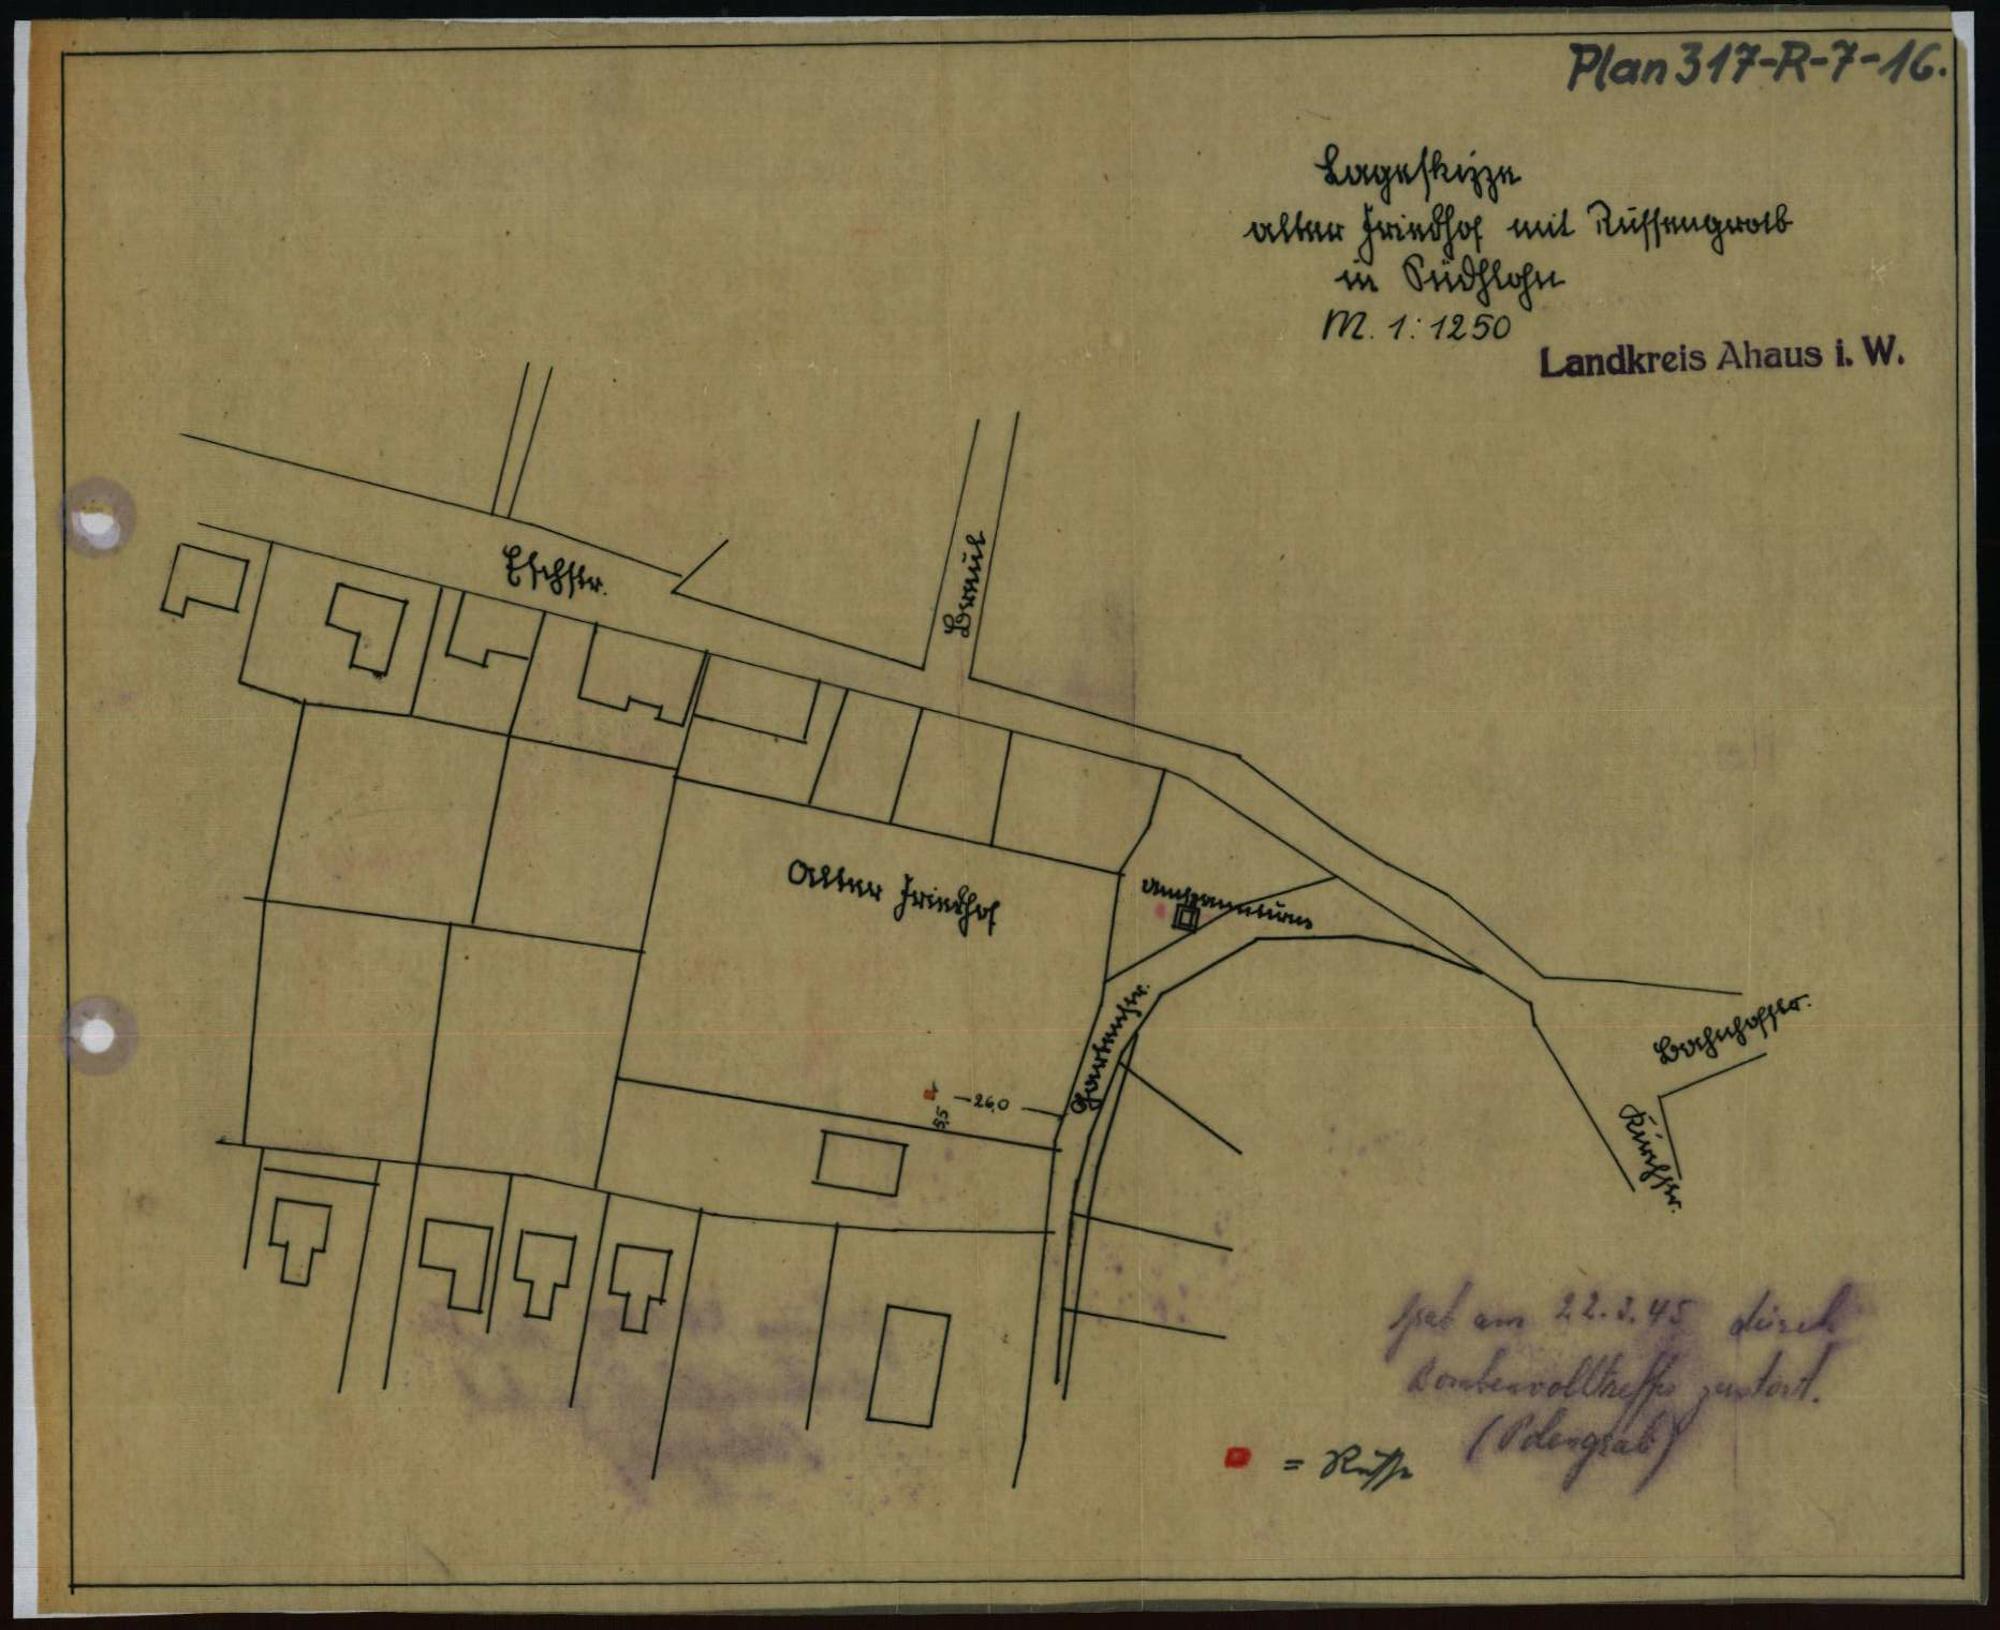 Plan 317-R-7-16.
Lageskizze
alter Friedhof mit Russengrab
in Südlohn
M. 1:1250
Landkreis Ahaus i. W.
Eschstr.
Breul
Alter Friedhof
Gartenstr.
Bahnhofstr.
Kirchstr.
1
26,0
5,5
am 22.3.45 durch
Bombenvolltreffer zerstört.
(Polengrab)
= Russe